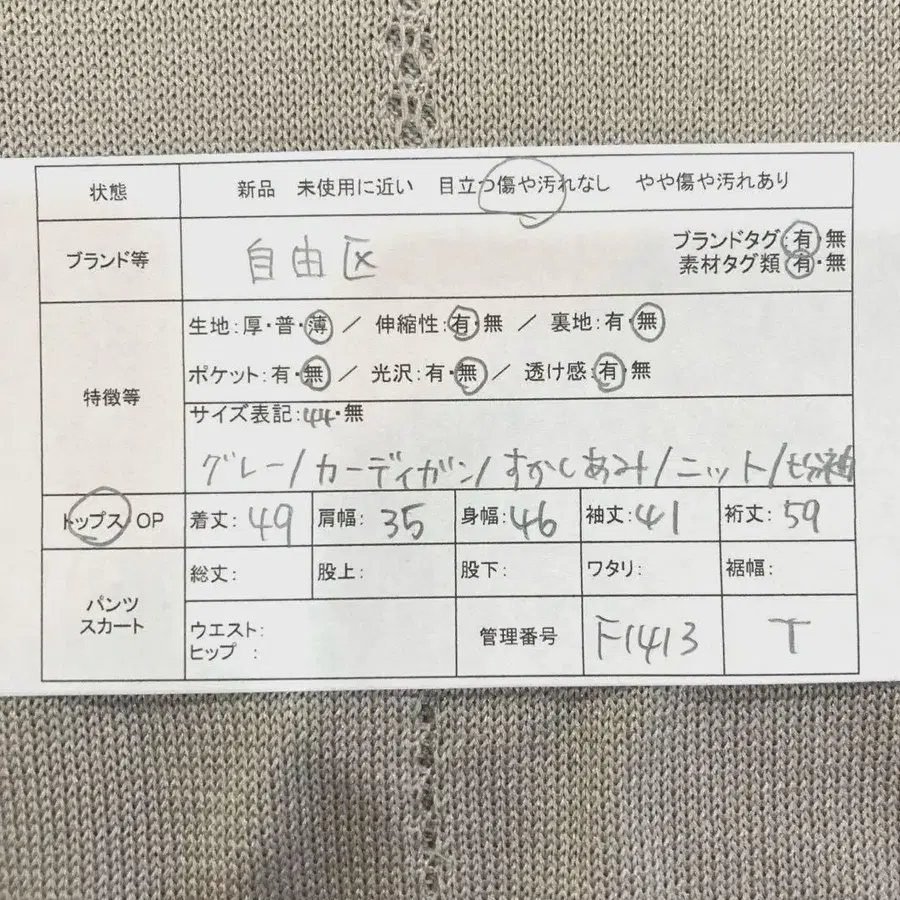 状態 新品 未使用に近い 目立つ傷や汚れなし やや傷や汚れあり
ブランド等 自由区 ブランドタグ:有・無
素材タグ類 有・無
特徴等
生地:厚・普・薄 / 伸縮性:有・無 / 裏地:有・無
ポケット:有・無 / 光沢:有・無 / 透け感:有・無
サイズ表記:44・無
グレー/カーディガン/すかしあみ/ニット/七分袖
トップス/OP 着丈:49 肩幅:35 身幅:46 袖丈:41 裄丈:59
パンツ
スカート
総丈: 股上: 股下: ワタリ: 裾幅:
ウエスト:
ヒップ :
管理番号 F1413 T